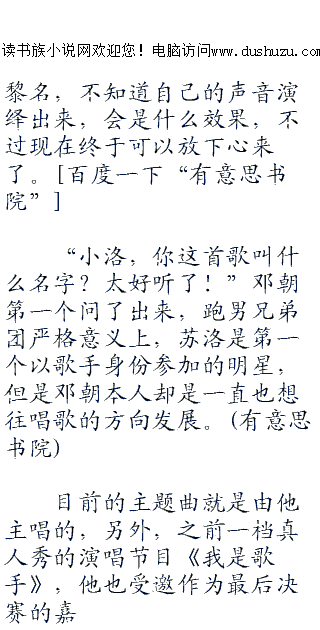 读书族小说网欢迎您！电脑访问www.dushuzu.com
黎名，不知道自己的声音演
绎出来，会是什么效果，不
过现在终于可以放下心来
了。[百度一下“有意思书
院”]
“小洛，你这首歌叫什
么名字？太好听了！”邓朝
第一个问了出来，跑男兄弟
团严格意义上，苏洛是第一
个以歌手身份参加的明星，
但是邓朝本人却是一直也想
往唱歌的方向发展。(有意思
书院)
目前的主题曲就是由他
主唱的，另外，之前一档真
人秀的演唱节目《我是歌
手》，他也受邀作为最后决
赛的嘉